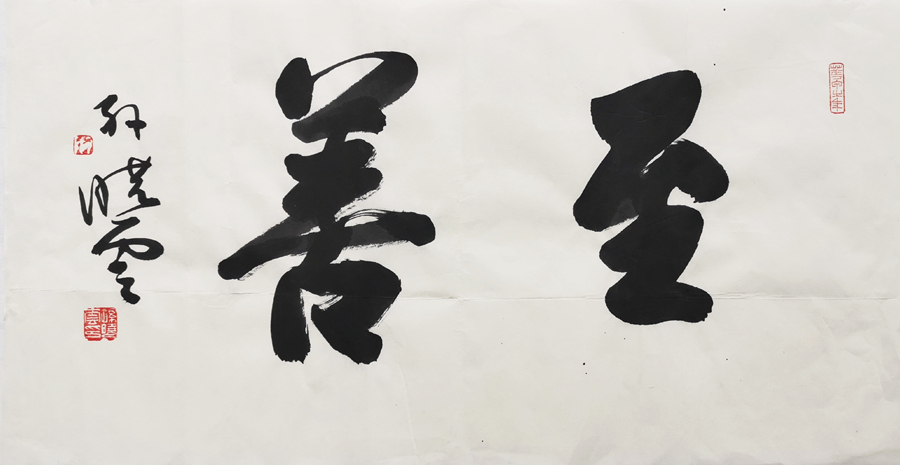 至善
孙晓云